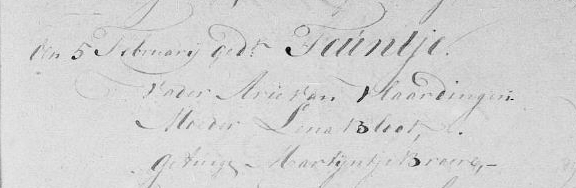 den 5 February gedt. Teuntje.
Vader Arie van Vlaardingen
Moeder Lena Bloot,
getuige Martyntje